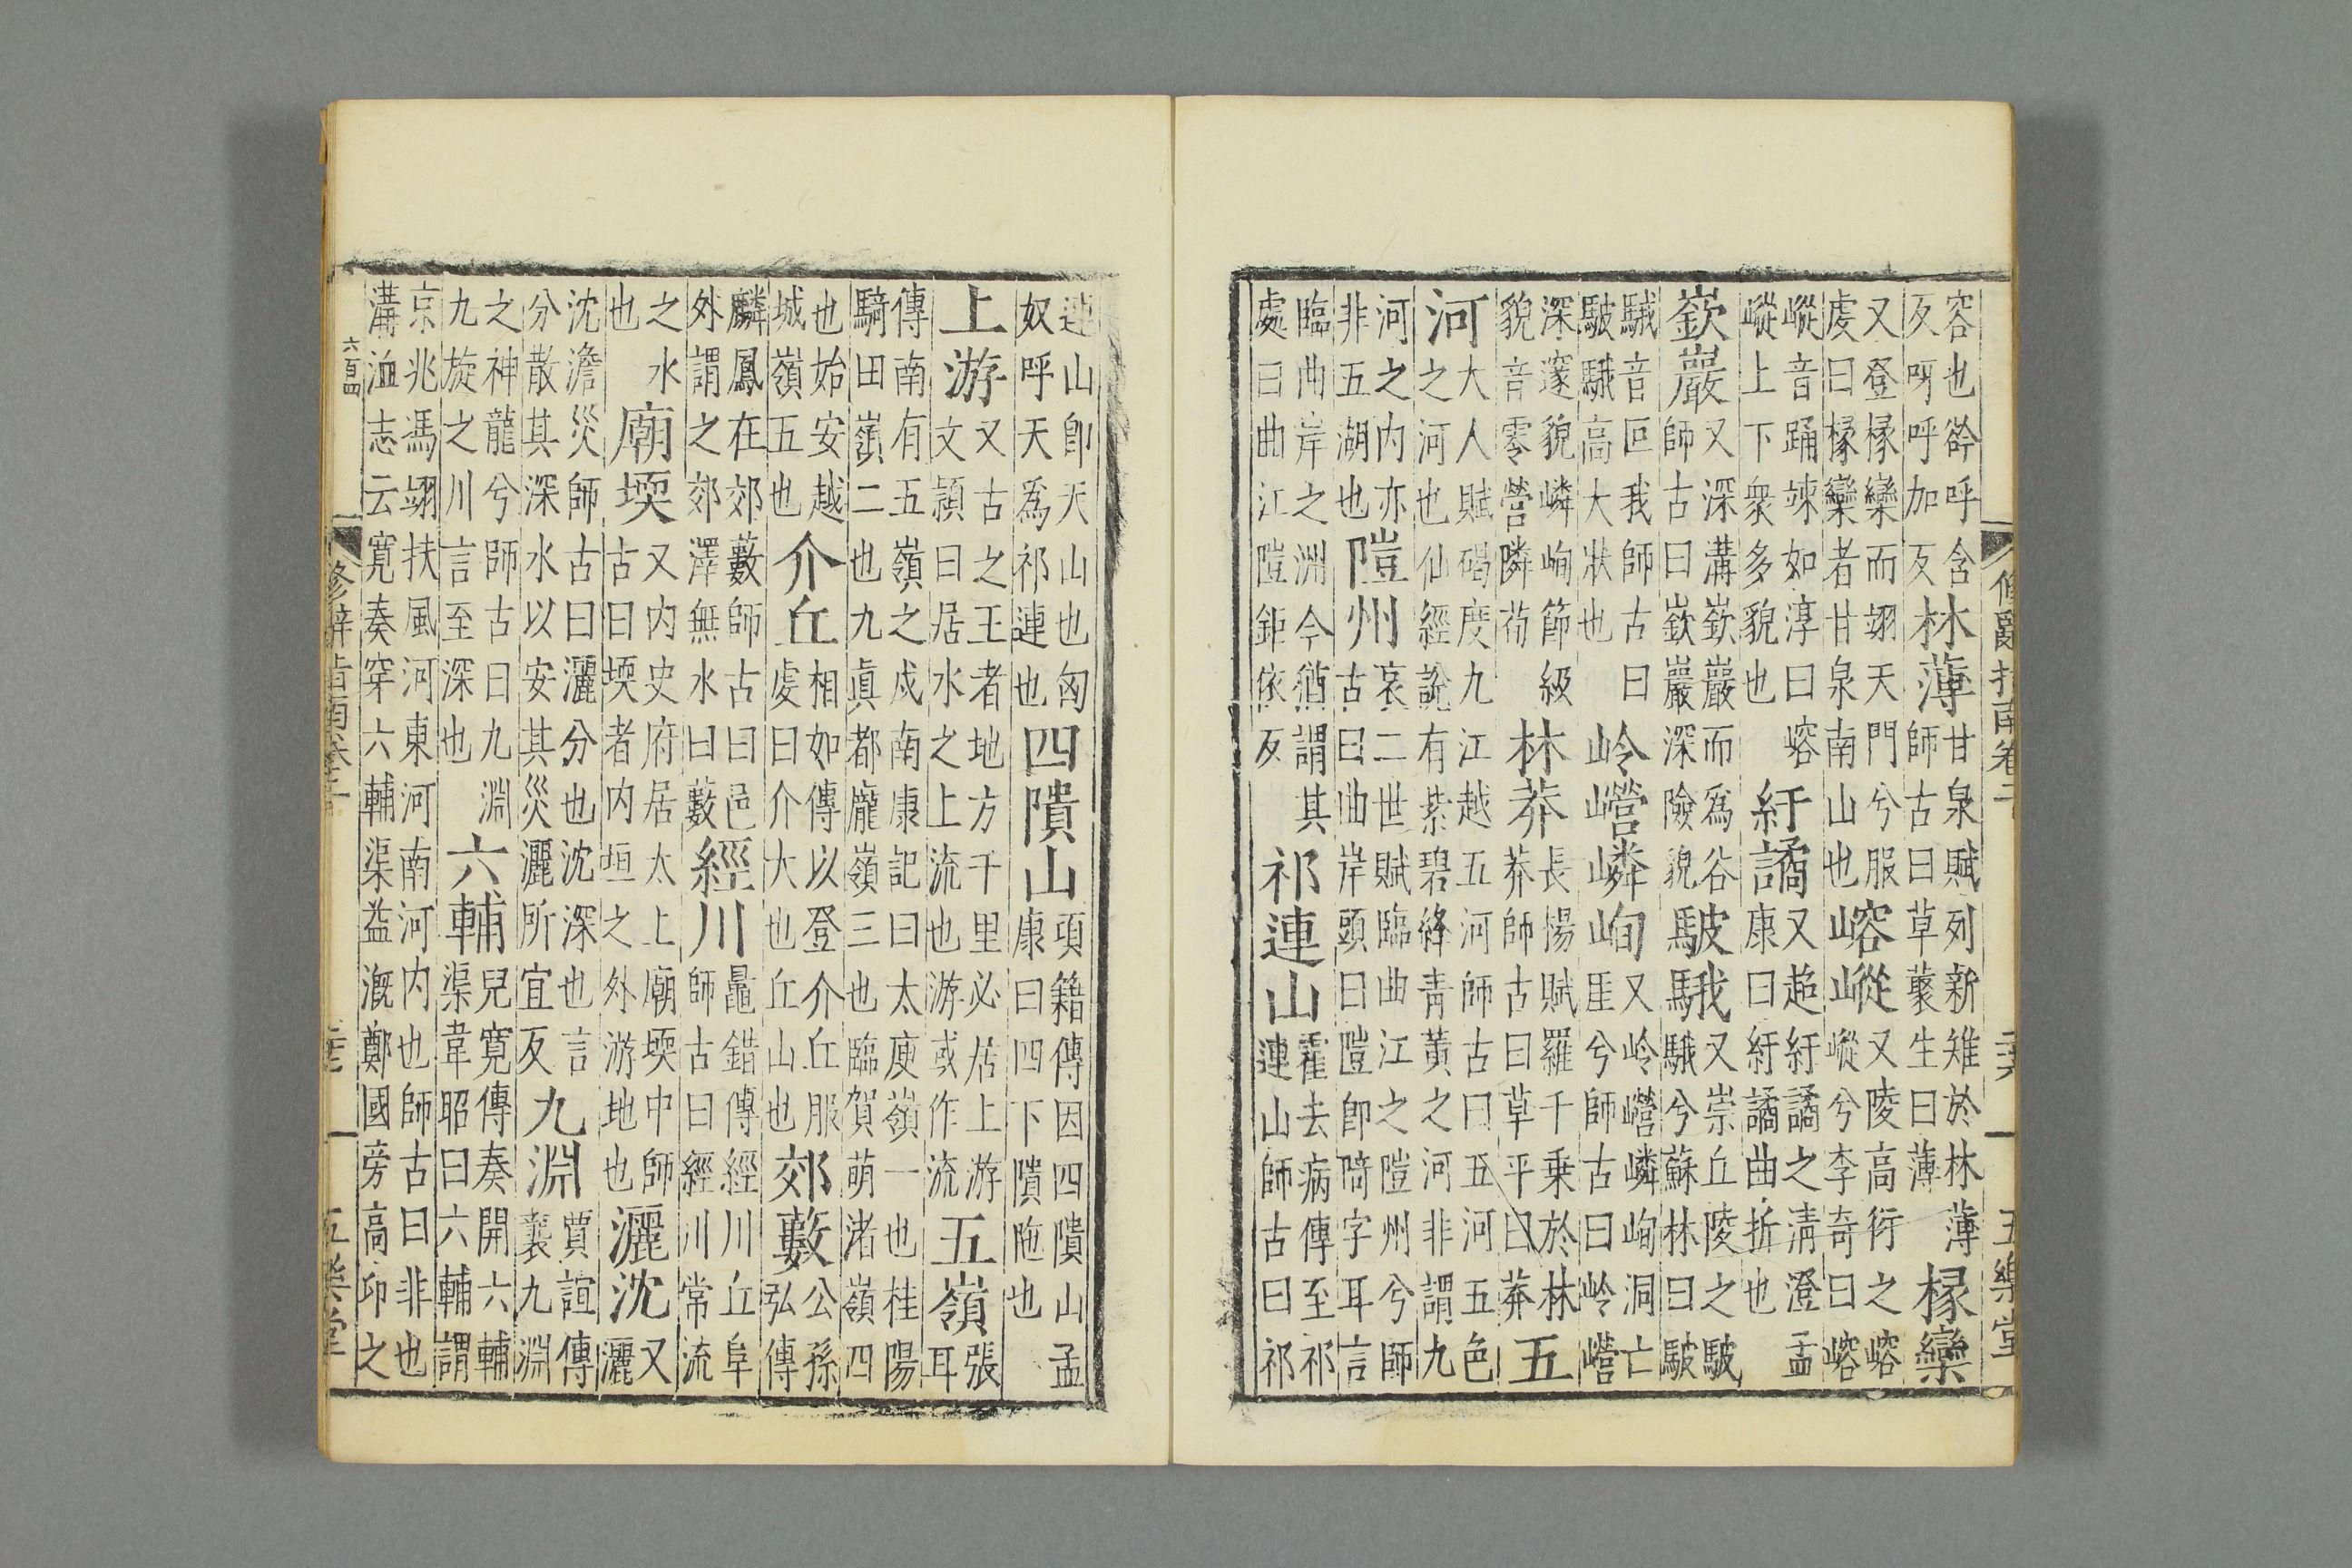 修辭指南卷二 二十六 五樂堂
容也谽呼含反呀呼加反林薄甘泉賦列新雉於林薄師古曰草藂生曰薄椽欒
又登椽欒而翊天門兮服虔曰椽欒者甘泉南山也嵱嵷又陵高衍之嵱嵷兮李奇曰嵱
嵷音踊竦如淳曰嵱嵷上下衆多貌也紆譎又超紆譎之清澄孟康曰紆譎曲折也
嶔巖又深溝嶔巖而爲谷師古曰嶔巖深險貌駊騀又崇丘陵之駊騀兮蘇林曰駊
騀音叵我師古曰駊騀高大狀也岭巆嶙峋又岭巆嶙峋洞亡厓兮師古曰岭巆
深邃貌嶙峋節級貌音零營隣荀林莽長揚賦羅千乗於林莽師古曰草平曰莽五
河大人賦碣度九江越五河師古曰五河五色之河也仙經說有紫碧絳青黃之河非謂九
河之内亦非五湖也隑州哀二世賦臨曲江之隑州兮師古曰曲岸頭曰隑卽碕字耳言
臨曲岸之洲今猶謂其處曰曲江隑鉅依反祁連山霍去病傳至祁連山師古曰祁
連山卽天山也匈奴呼天爲祁連也四隤山項籍傳因四隤山孟康曰四下隤陁也
上游又古之王者地方千里必居上游文穎曰居水之上流也游或作流五嶺張耳
傳南有五嶺之戍南康記曰太庾嶺一也桂陽騎田嶺二也九眞都龐嶺三也臨賀萌渚嶺四
也始安越城嶺五也介丘相如傳以登介丘服虔曰介大也丘山也郊藪公孫弘傳
麟鳳在郊藪師古曰邑外謂之郊澤無水曰藪經川鼂錯傳經川丘阜師古曰經川常流
之水也廟堧又内史府居太上廟堧中師古曰堧者内垣之外游地也灑沈又灑
沈澹災師古曰灑分也沈深也言分散其深水以安其災灑所宜反九淵賈誼傳襲九淵
之神龍兮師古曰九淵九旋之川言至深也六輔兒寬傳奏開六輔渠韋昭曰六輔謂
京兆馮翊扶風河東河南河内也師古曰非也溝洫志云寬奏穿六輔渠益漑鄭國旁高卬之
六百四
修辭指南卷二 五樂堂